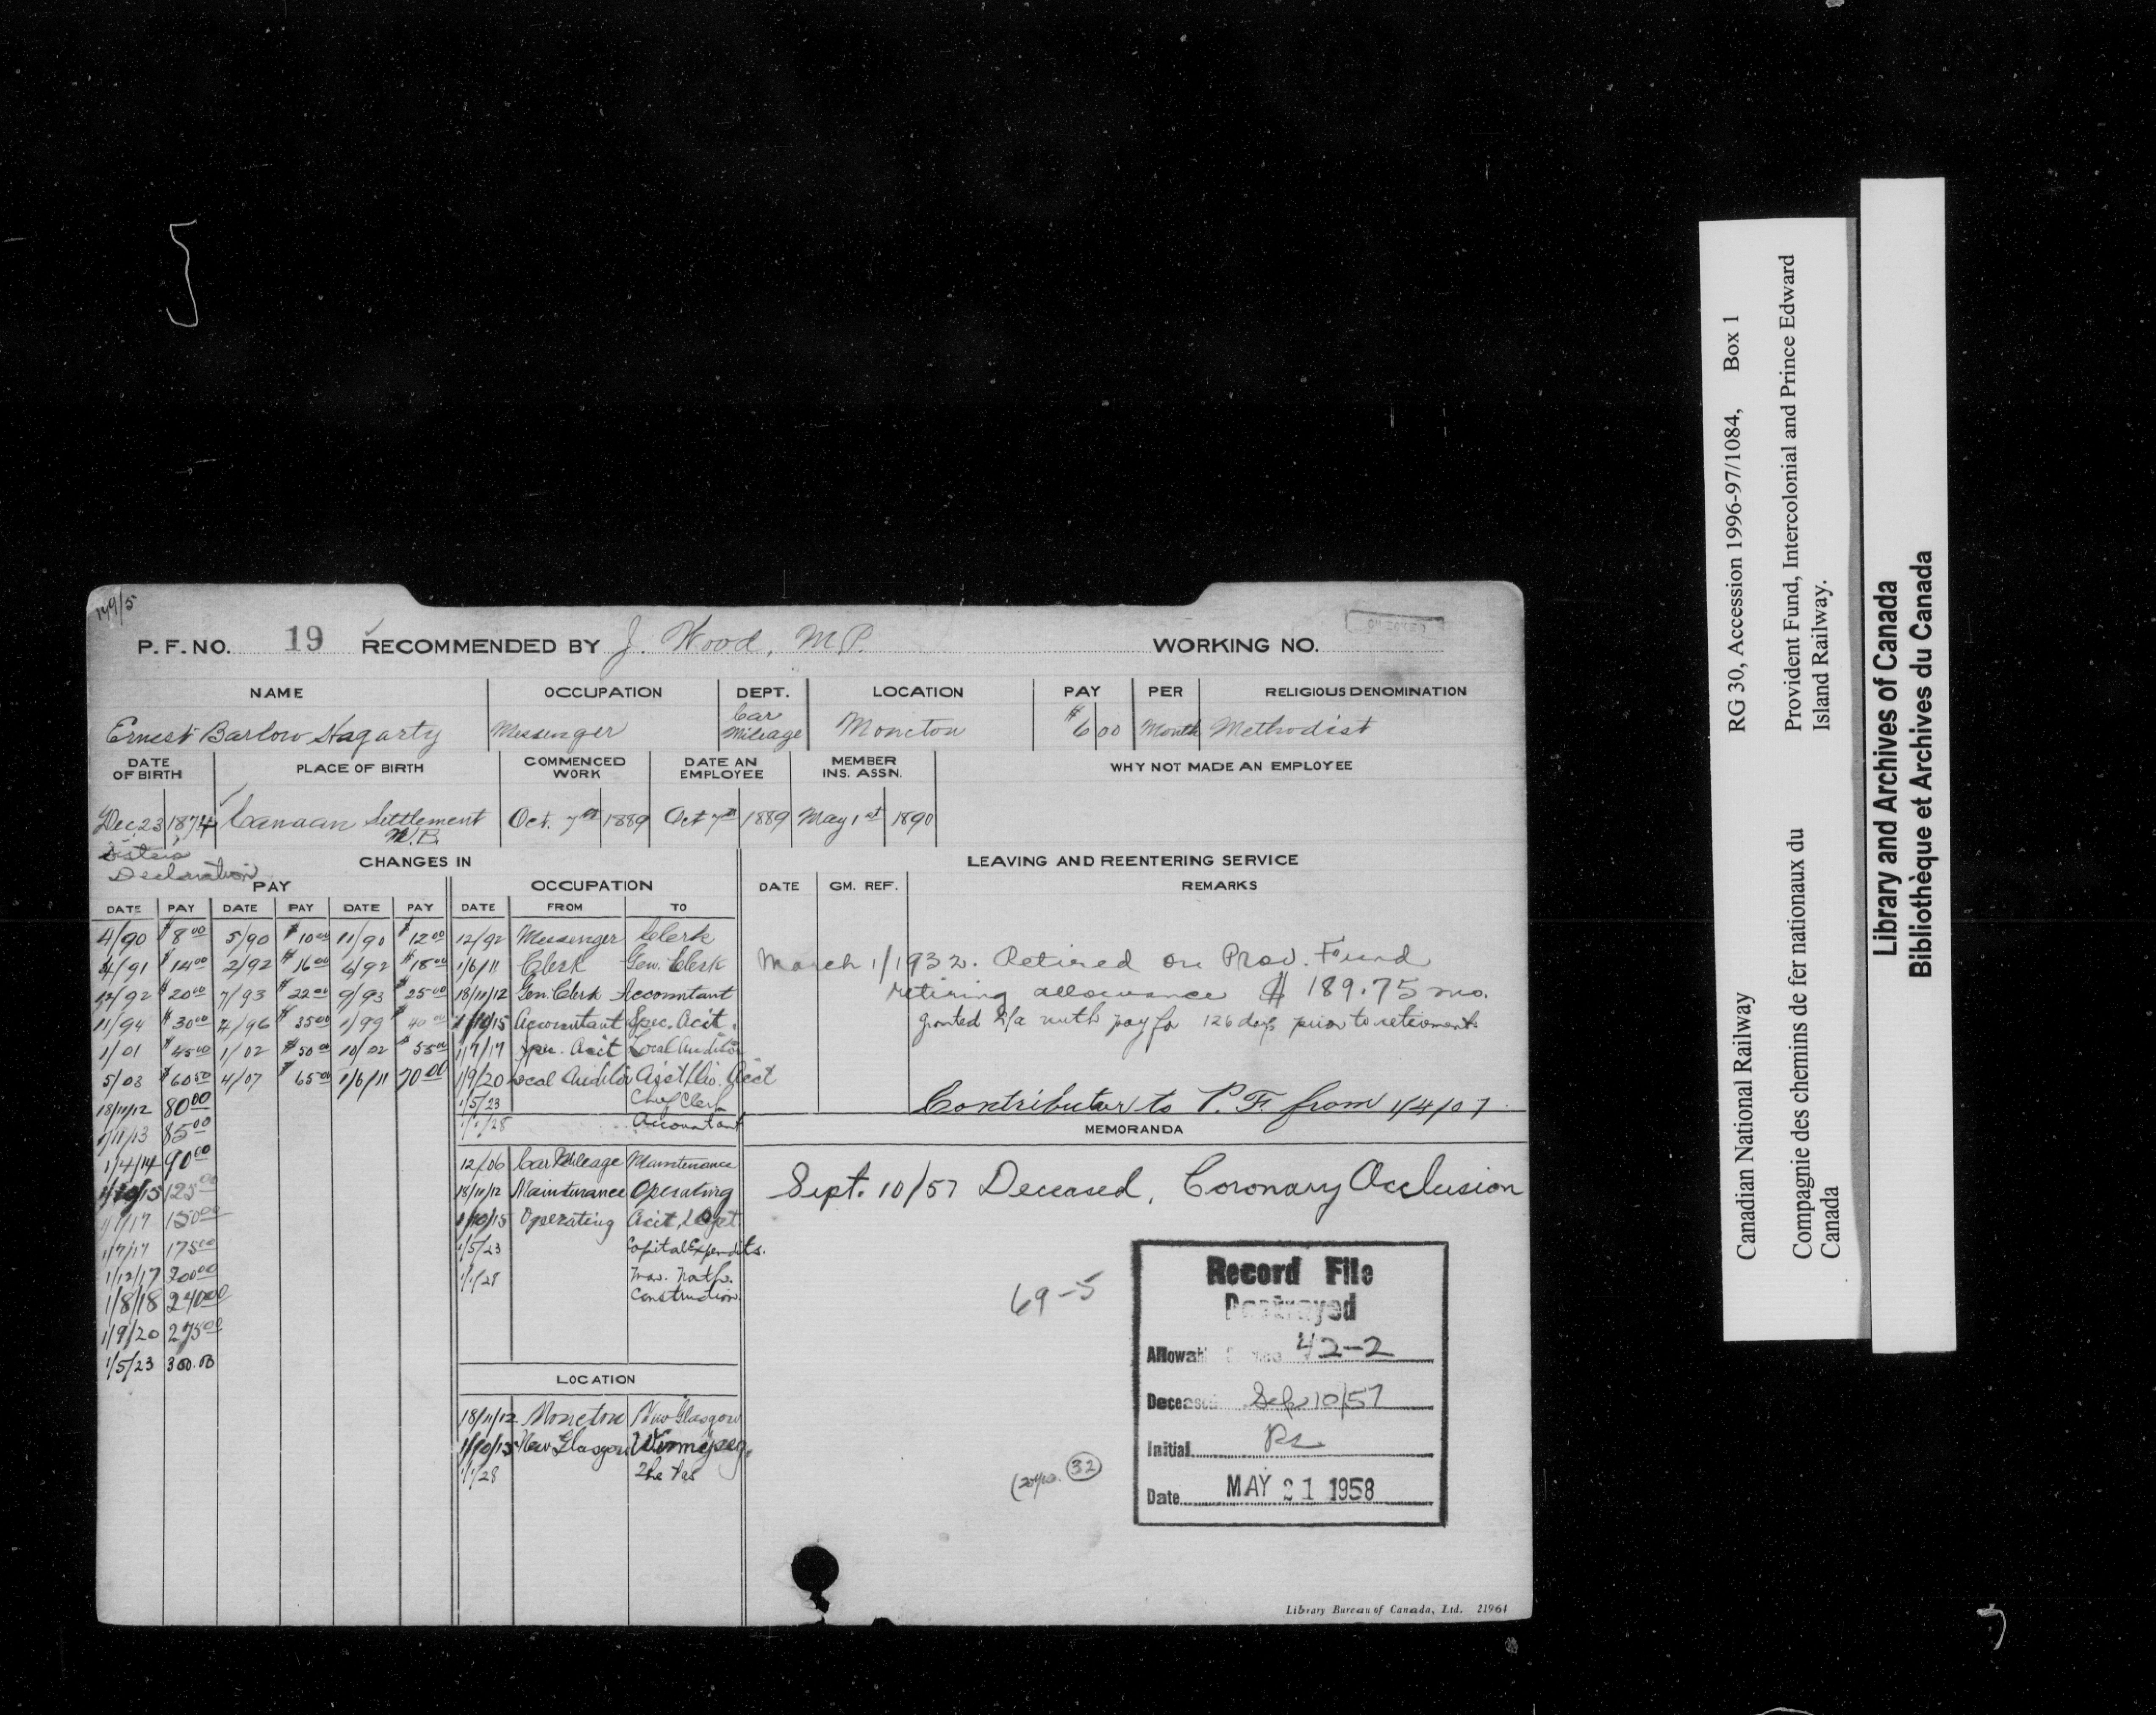 149/5
P. F. NO. 19 RECOMMENDED BY J. Wood, M.P. WORKING NO.
CHECKED
NAME OCCUPATION DEPT. LOCATION PAY PER RELIGIOUS DENOMINATION
Ernest Barlow Hagarty Messenger Car Mileage Moncton $6 00 Month Methodist
DATE OF BIRTH PLACE OF BIRTH COMMENCED WORK DATE AN EMPLOYEE MEMBER INS. ASSN. WHY NOT MADE AN EMPLOYEE
Dec 23 1874 Canaan Settlement N.B. Oct. 7th 1889 Oct 7th 1889 May 1st 1890
Sister's Declaration
CHANGES IN
PAY
DATE PAY DATE PAY DATE PAY
4/90 $8 00 5/90 $10 00 11/90 $12 00
4/91 $14 00 2/92 $16 00 4/92 $18 00
12/92 $20 00 7/93 $22 00 9/93 $25 00
11/94 $30 00 7/96 $35 00 1/99 $40 00
1/01 $45 00 1/02 $50 00 10/02 $55 00
5/03 $60 50 4/07 $65 00 1/6/11 70 00
18/11/12 80 00
1/11/13 85 00
1/4/14 90 00
1/10/15 125 00
1/1/17 150 00
1/7/17 175 00
1/12/17 200 00
1/8/18 240 00
1/9/20 275 00
1/5/23 300.00
OCCUPATION
DATE FROM TO
12/92 Messenger Clerk
1/6/11 Clerk Gen. Clerk
18/11/12 Gen. Clerk Accountant
1/10/15 Accountant Spec. Acct.
1/7/17 Spec. Acct Local Auditor
1/9/20 Local Auditor Asst Div. Acct
1/5/23 Chief Clerk
1/1/28 Accountant
12/06 Car Mileage Maintenance
18/11/12 Maintenance Operating
1/10/15 Operating Acct. Dept.
1/5/23 Capital Expendits.
1/1/28
Construction.
LOCATION
18/11/12 Moncton New Glasgow
1/10/15 New Glasgow Winnipeg.
1/1/28 The Pas
LEAVING AND REENTERING SERVICE
DATE GM. REF. REMARKS
March 1/1932. Retired on Prov. Fund
retiring allowance $ 189.75 mo.
granted l/a with pay for 126 days prior to retirement.
Contributor to P. F. from 1/4/07
MEMORANDA
Sept. 10/57 Deceased, Coronary Occlusion
69-5
32
Record File
Destroyed
42-2
Deceased Sep 10/57
Initial
Date MAY 21 1958
Library Bureau of Canada, Ltd. 21964
Canadian National Railway RG 30, Accession 1996-97/1084, Box 1
Compagnie des chemins de fer nationaux du Canada Provident Fund, Intercolonial and Prince Edward Island Railway.
Library and Archives of Canada
Bibliothèque et Archives du Canada